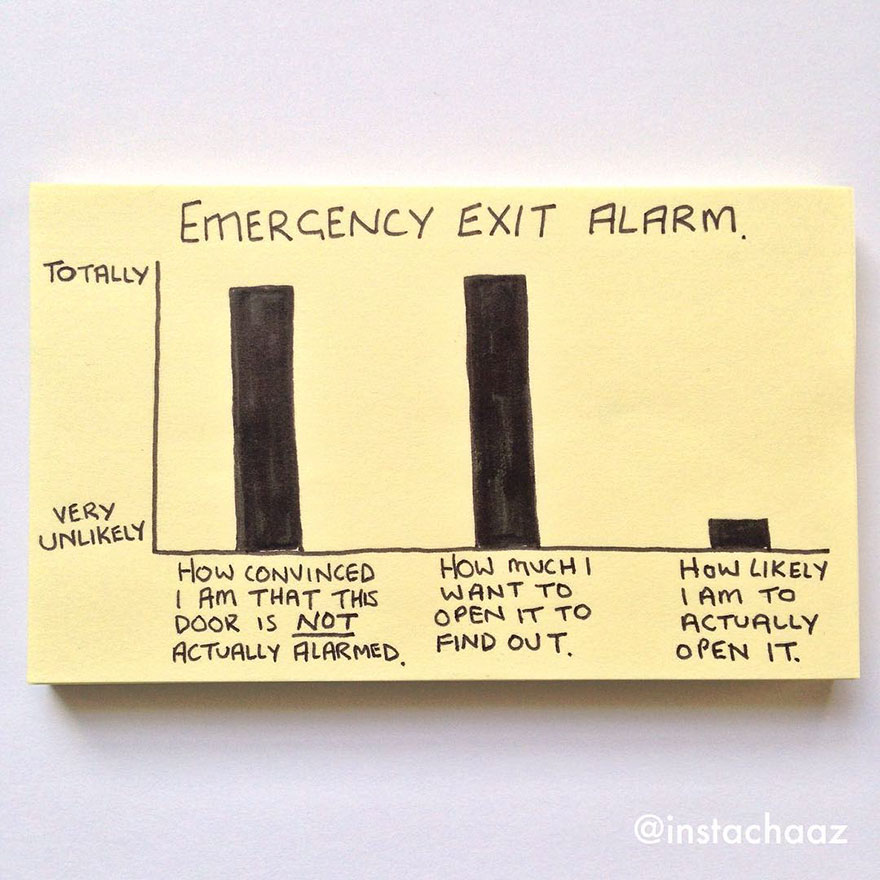 EMERGENCY EXIT ALARM.
TOTALLY
VERY
UNLIKELY
HOW CONVINCED
I AM THAT THIS
DOOR IS NOT
ACTUALLY ALARMED.
HOW MUCH I
WANT TO
OPEN IT TO
FIND OUT.
HOW LIKELY
I AM TO
ACTUALLY
OPEN IT.
@instachaaz